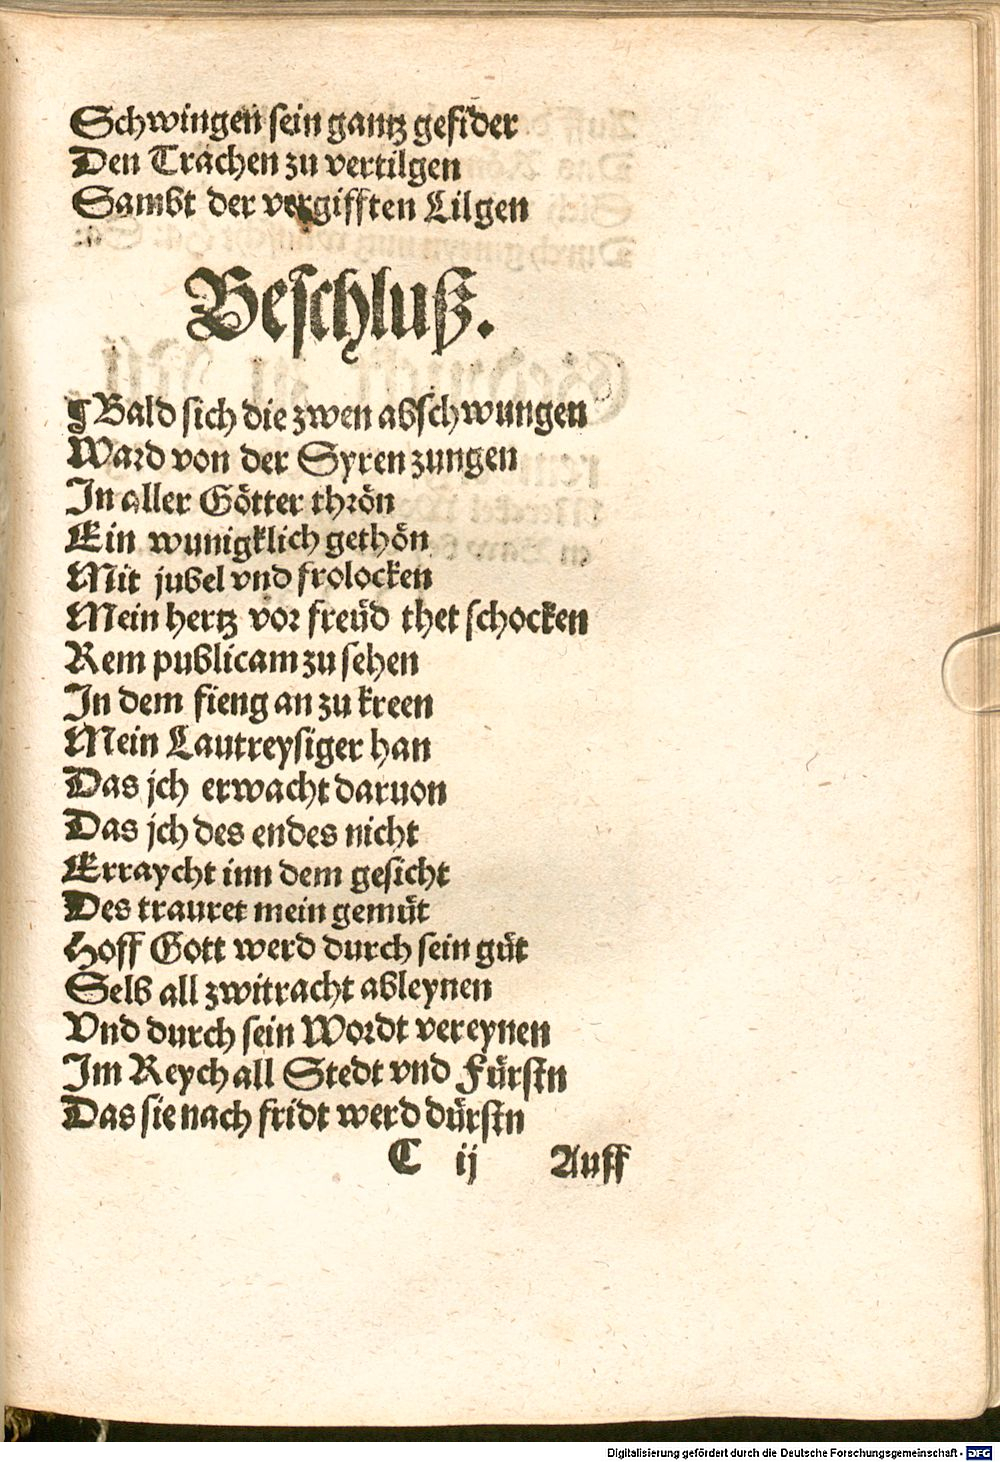 Schwingen sein gantz gefider
Den Trachen zu vertilgen
Sambt der vergifften Lilgen
Beschluß.
¶ Bald sich die zwen abschwungen
Ward von der Syren zungen
In aller Götter thrön
Ein wunigklich gethön
Mit jubel vnd frolocken
Mein hertz vor freüd thet schocken
Rem publicam zu sehen
In dem fieng an zu kreen
Mein Lautreysiger han
Das jch erwacht daruon
Das jch des endes nicht
Erraycht inn dem gesicht
Des trauret mein gemüt
Hoff Gott werd durch sein güt
Selb all zwitracht ableynen
Vnd durch sein Wordt vereynen
Im Reych all Stedt vnd Fürstn
Das sie nach fridt werd dürstn
C ij Auff
Digitalisierung gefördert durch die Deutsche Forschungsgemeinschaft - DFG